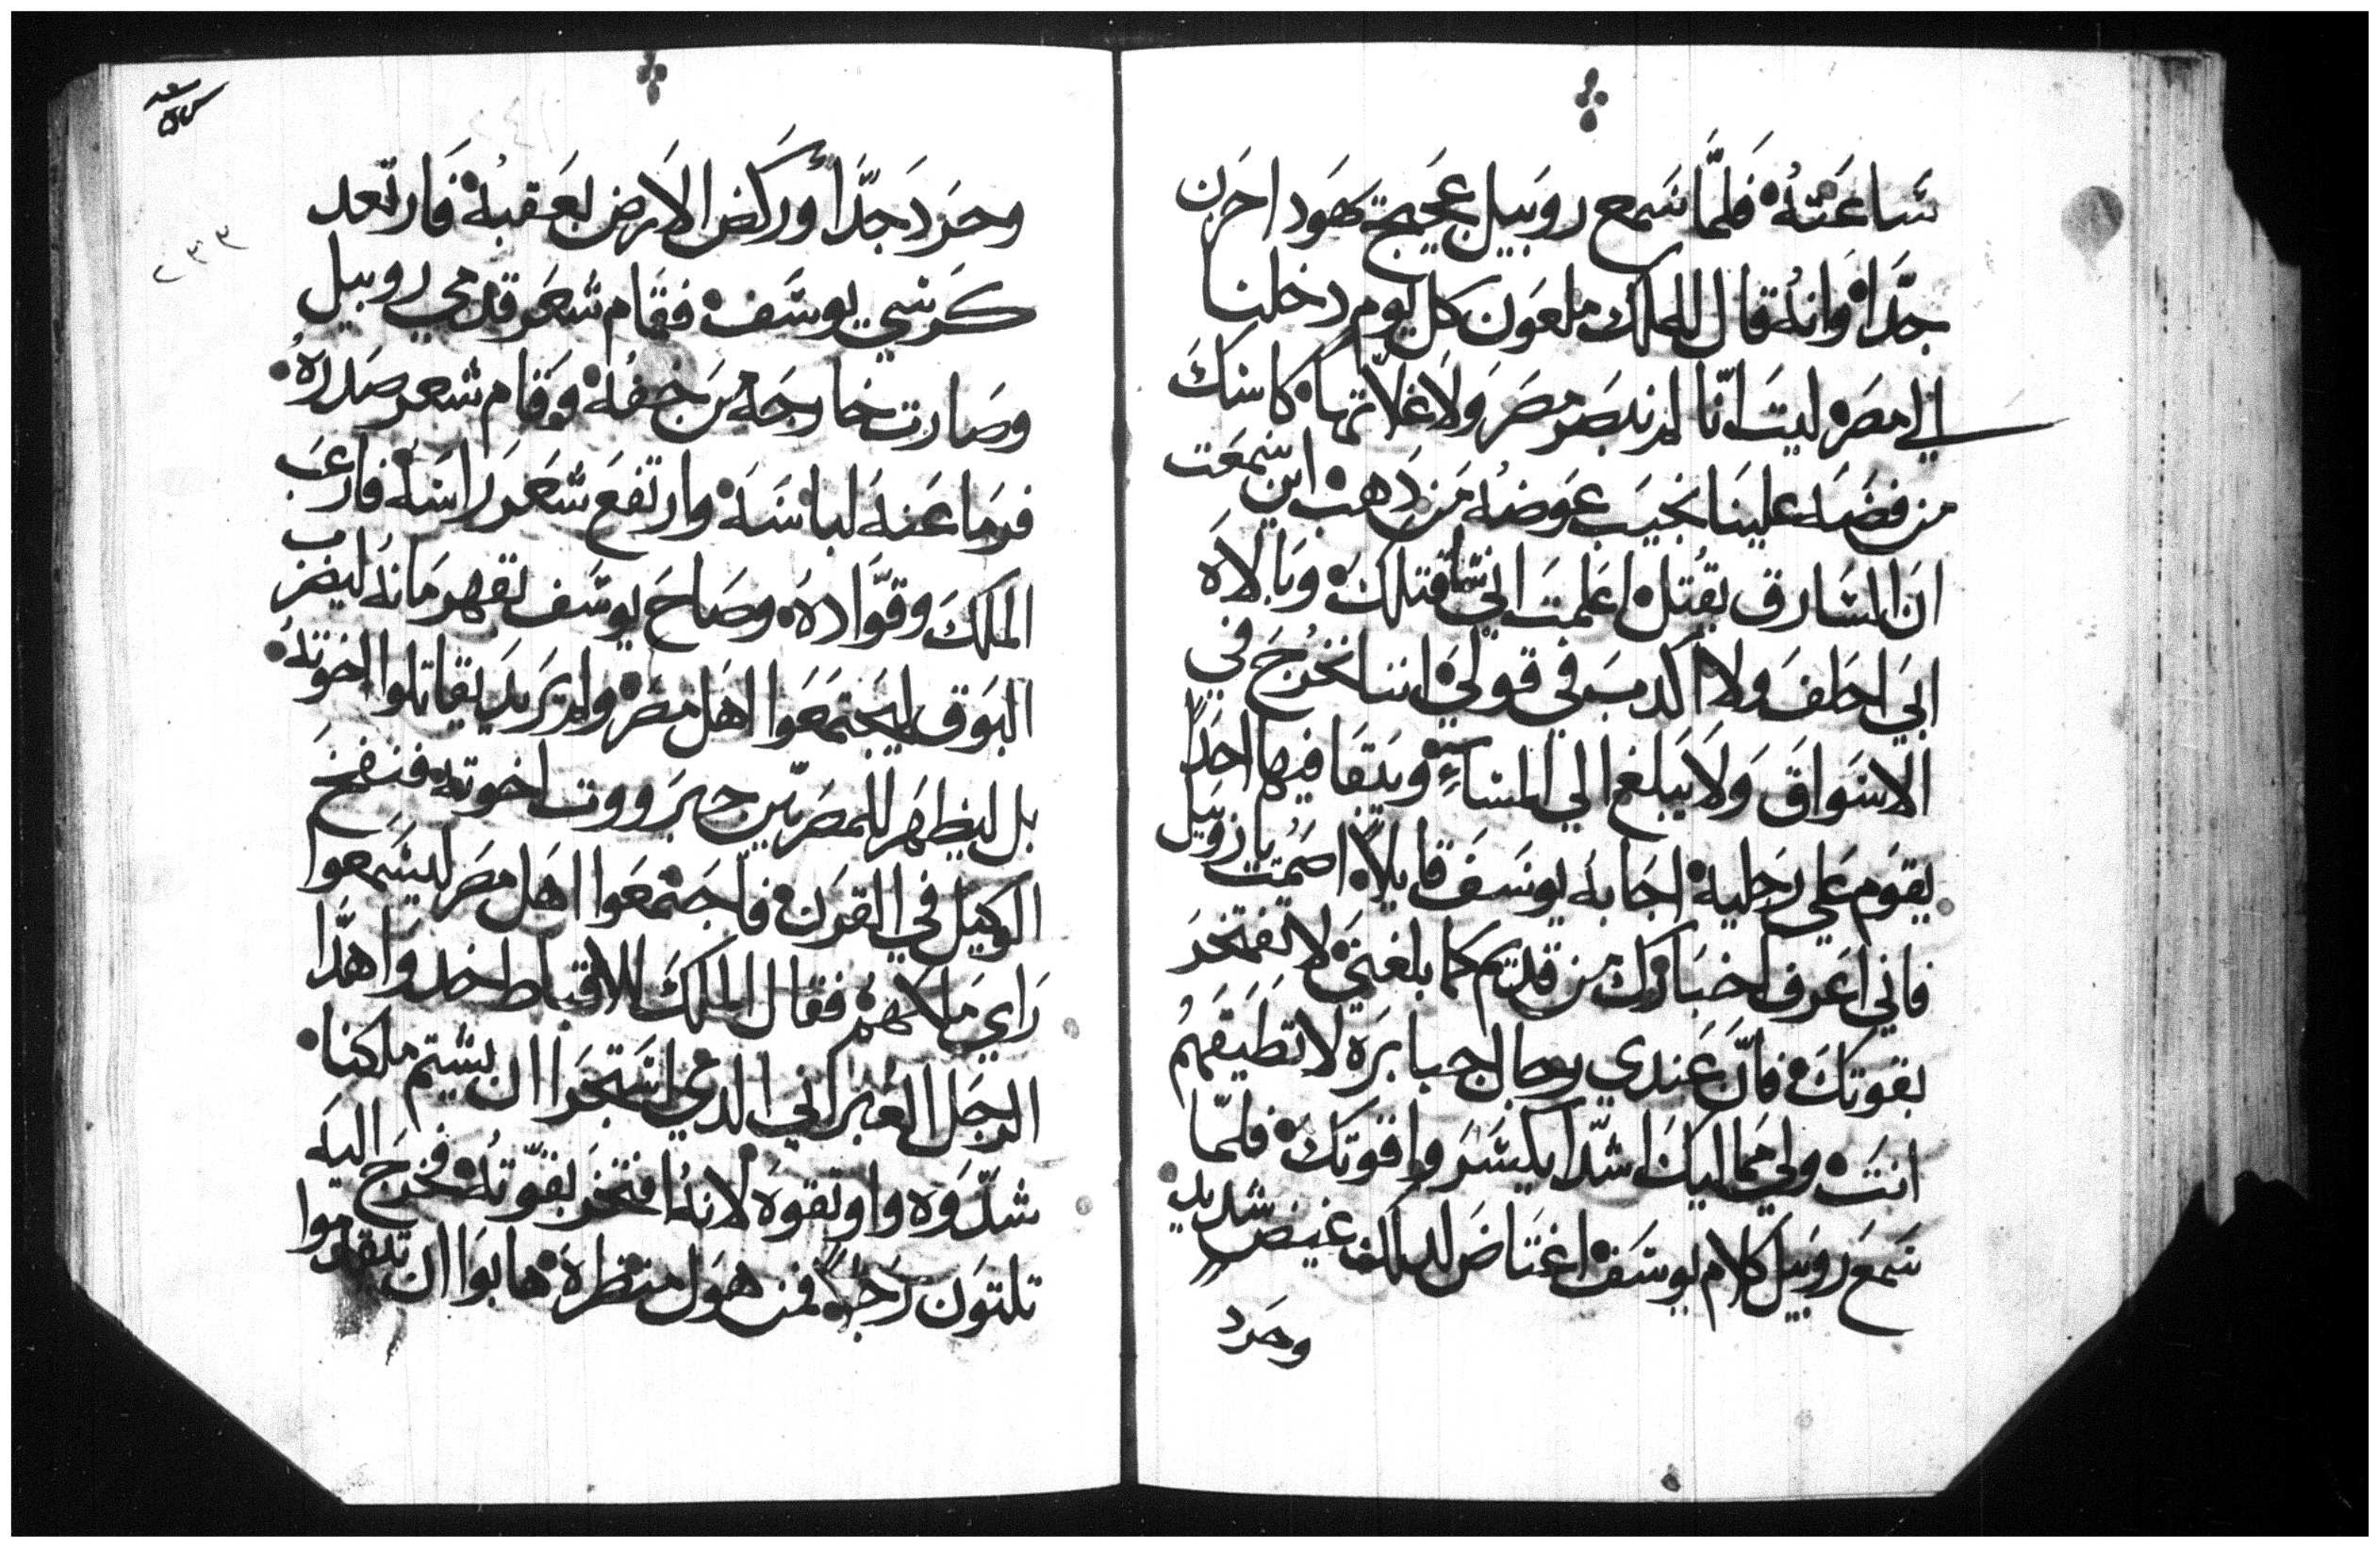 شاعَتهُ فَلمَّا سَمع روَبيل عجَيج يهَودا حَزن
جدًّا وَانهُ قال للملك ملعَون كل يوم دخلنا
الي مصَر ليتَ انّنا لم نبصَر مصَر وَلا غلاّتها كاسَكَ
من فضَه علينَا نجيَب عوَضهُ مَن دَهب اين سَمعَت
ان السَارق يقُتل اعلمَت انني اقتلكَ وَبالاه
ابَي احَلفَ ولا اكدبَ في قوَلي اننا نخُرجَ في
الاسَواقَ وَلا يَبلغ الي المسَاءِ ويَبَقا فيها احَدًا
يقوَم عَلي رجليه اجَابهُ يوسَفَ قايلاً اصَمُت يا روَبيل
فاني اعَرف اخبَاركَ من قديَم كما بلغنَي لا تفتخرَ
بقوتكَ فانَّ عَندي رجال جبابرَه لا تطَيقهَمُ
انتَ ولي مماليكَ اشدّ بكسَر واقوتكَ فلمّا
سَمعَ روَبيل كلام يوسَف اغتَاضَ لدلك غيض شديد
وحَرد
وحَردَ جدَّا وركَض الارض بعَقبهُ فَارتعد
كرَسي يوسَف فقام شعَر قدمي روبيل
وصَارت خارجَه مَن خفهُ وَقام شعر صَدرهُ
فرمَا عَنهُ لباسَه وارتفعَ شعَر رَاسَه فارعَب
الملكَ وقوّادهُ وصَاحَ يوسَف بقهرمَانهُ ليضرَب
البَوق ليجتمَعَوا اهَل مصَر ولم يرَيد يقاتلوا اخوَتهُ
بل ليظهَر للمصَريّين جبَرووت اخوته فنفخَ
الوكيَل في القرَن فاجَتمعَوا اهَل مصَر ليسَمعوا
رَاي ملاكهم فقال الملكَ للاقباط خدوا هدَّا
الرجَل العُبراني الدي اسَتجَرا ان يشتم ملكنا
شدّوَه واوتقوَه لانهُ افتخَر بقوّتهُ فخرَج اليهَ
تلتوَن رَجلاً فمن هوَل منَظرهَ هابَوا ان تيقدموا
٢٣٣